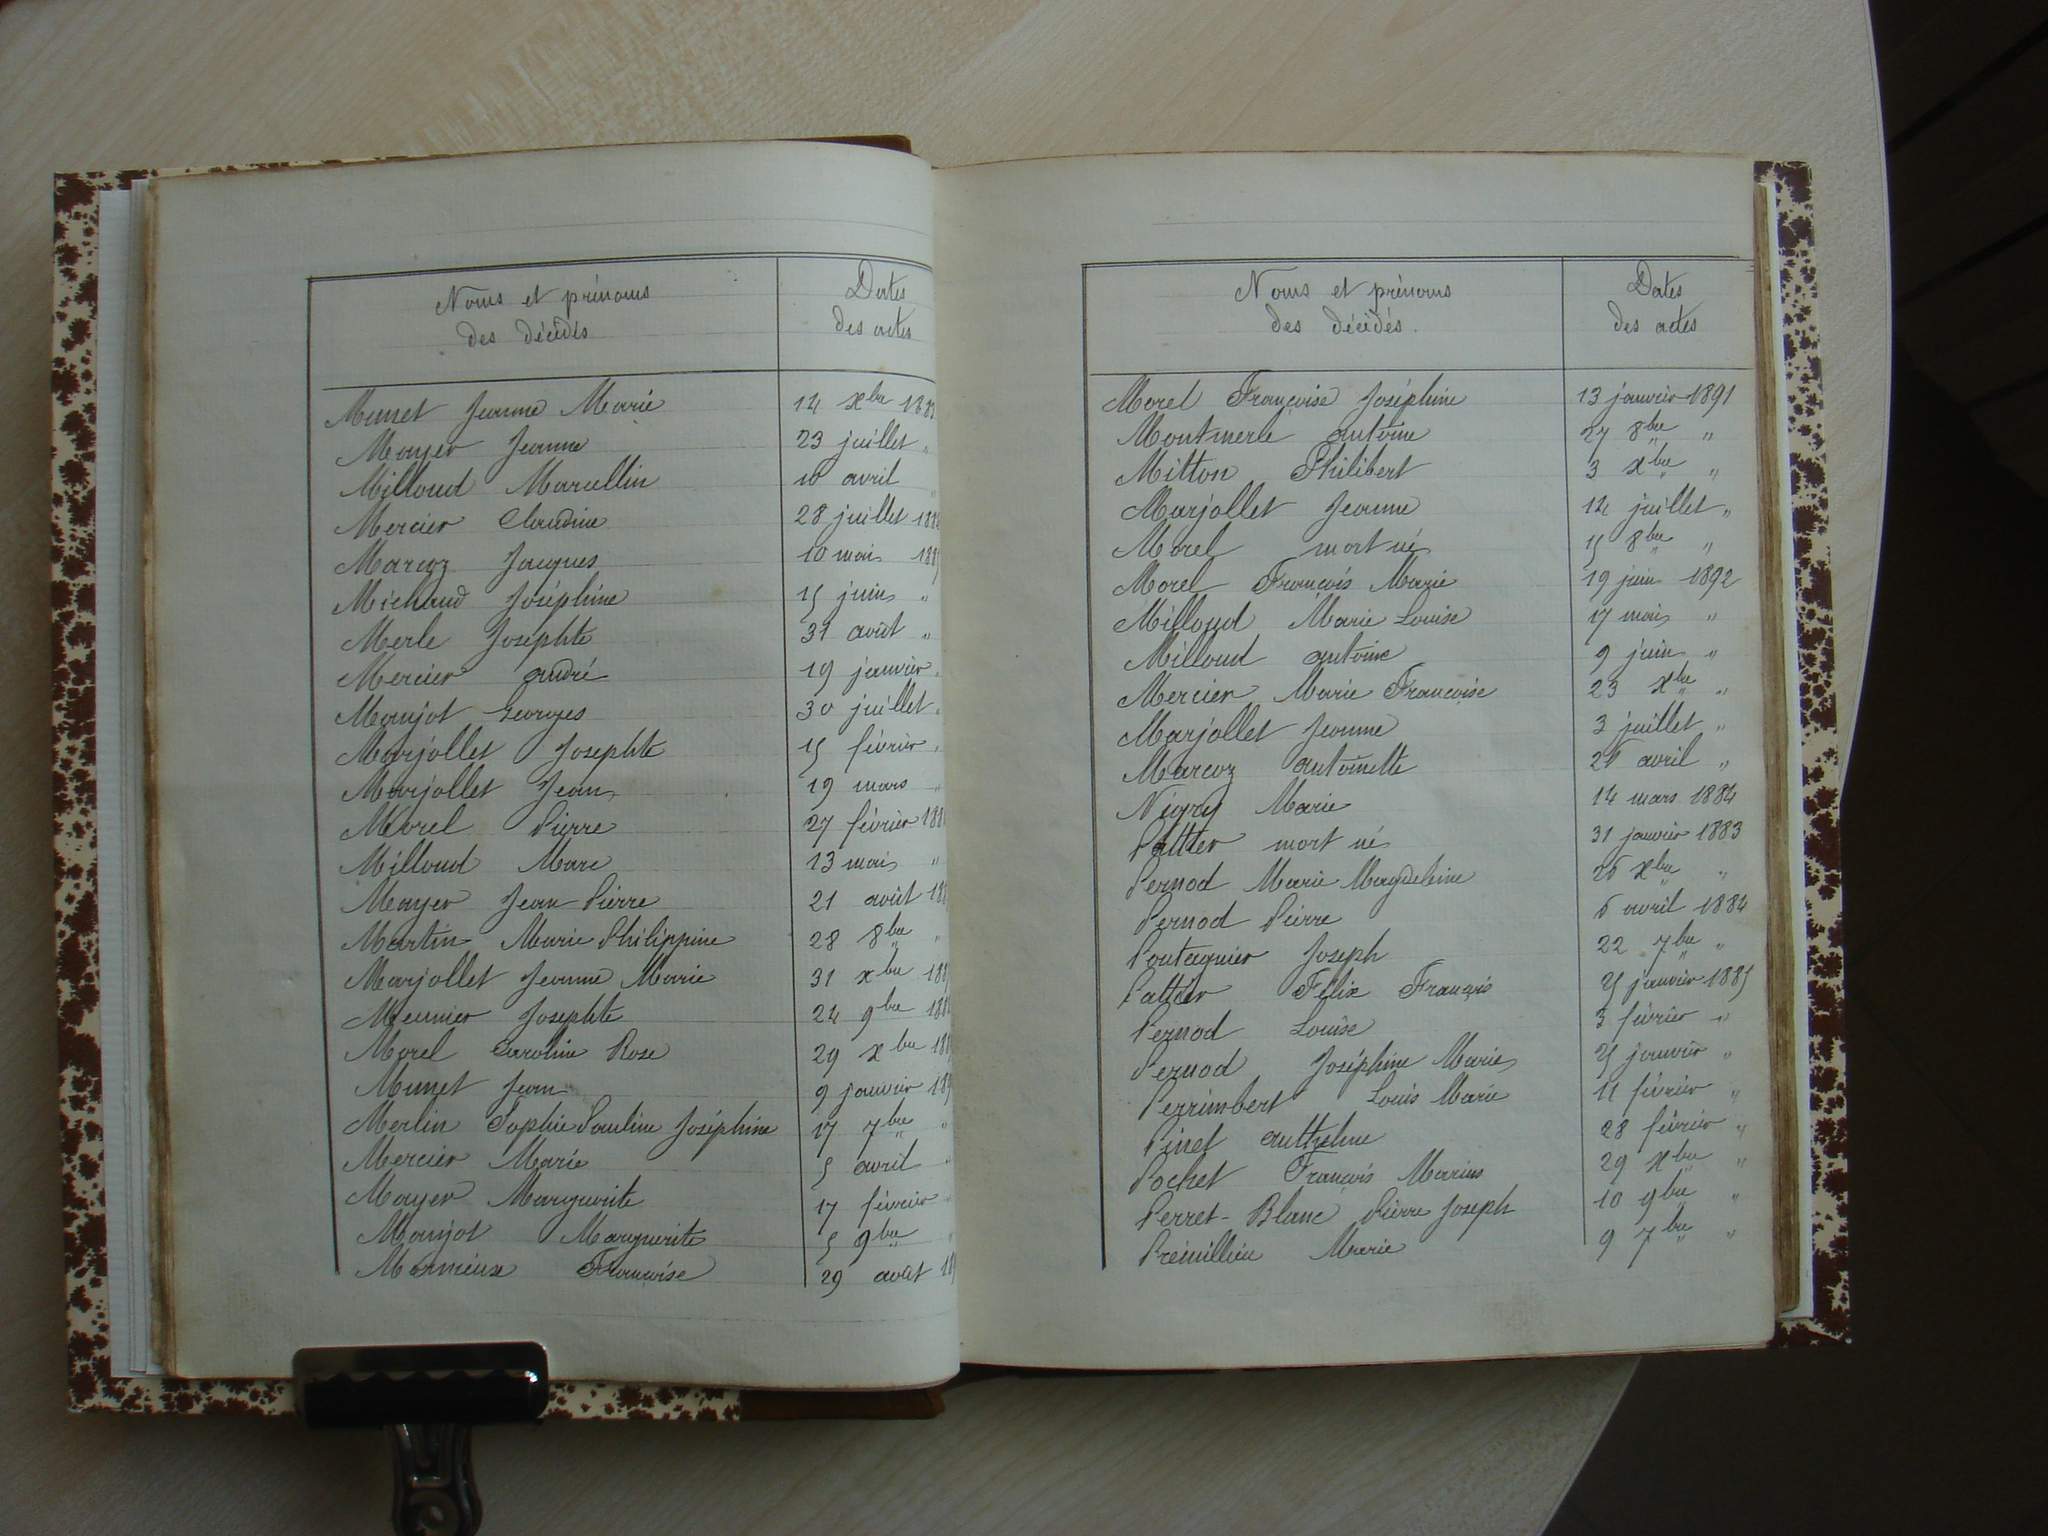 Noms et prénoms
des décédés
Dates
des actes
Munet Jeanne Marie 14 Xbre
Mayer Jeanne 23 juillet "
Milloud Marcellin 10 avril "
Mercier Claudine 28 juillet
Marcoz Jacques 10 mai
Michaud Joséphine 15 juin "
Merle Josephte 31 août "
Mercier André 19 janvier "
Maujot Georges 30 juillet "
Marjollet Josephte 15 février "
Marjollet Jean 19 mars "
Morel Pierre 27 février
Milloud Marc 13 mai "
Mayer Jean-Pierre 21 août
Martin Marie Philippine 28 8bre "
Marjollet Jeanne Marie 31 Xbre
Meunier Josephte 24 9bre
Morel Caroline Rose 29 Xbre
Munet Jean 9 janvier
Merlin Sophie Pauline Joséphine 17 7bre "
Mercier Marie 5 avril "
Mayer Marguerite 17 février "
Maujot Marguerite 5 9bre "
Françoise 29 août
Noms et prénoms
des décédés.
Dates
des actes
Morel Françoise Joséphine 13 janvier 1891
Montmerle Antoine 27 8bre "
Mitton Philibert 3 Xbre "
Marjollet Jeanne 14 juillet "
Morel mort né 15 8bre "
Morel François Marie 19 juin 1892
Milloud Marie Louise 17 mai "
Milloud Antoine 9 juin "
Mercier Marie Françoise 23 Xbre "
Marjollet Jeanne 3 juillet "
Marcoz Antoinette avril "
Marie 14 mars 1884
Pattier mort né 31 janvier 1883
Pernod Marie Magdeleine 26 Xbre "
Pernod Pierre 6 avril 1884
Joseph 22 7bre "
Pattier Félix François 25 janvier 1885
Pernod Louise 3 février "
Pernod Joséphine Marie 25 janvier "
Perrimbert Louis Marie 11 février "
Pinet Anthelme 28 février "
Pochet François Marius 29 Xbre "
Perret-Blanc Pierre Joseph 10 9bre "
Marie 9 7bre "